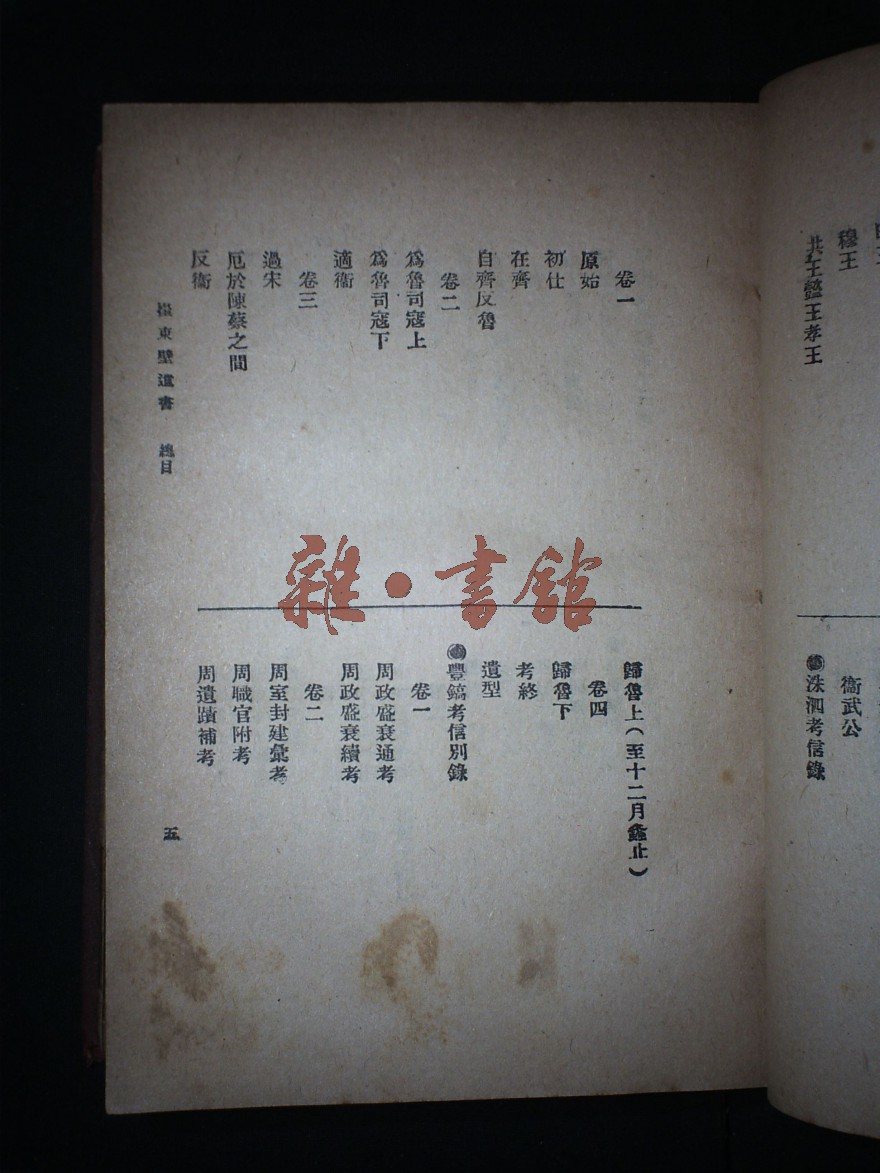 穆王
共王懿王孝王
衞武公
洙泗考信錄
卷一
原始
初仕
在齊
自齊反魯
卷二
爲魯司寇上
爲魯司寇下
適衞
卷三
過宋
厄於陳蔡之間
反衞
歸魯上(至十二月螽止)
卷四
歸魯下
考終
遺型
豐鎬考信別錄
卷一
周政盛衰通考
周政盛衰續考
卷二
周室封建彙考
周職官附考
周遺蹟補考
崔東壁遺書 總目
五
雜·書館